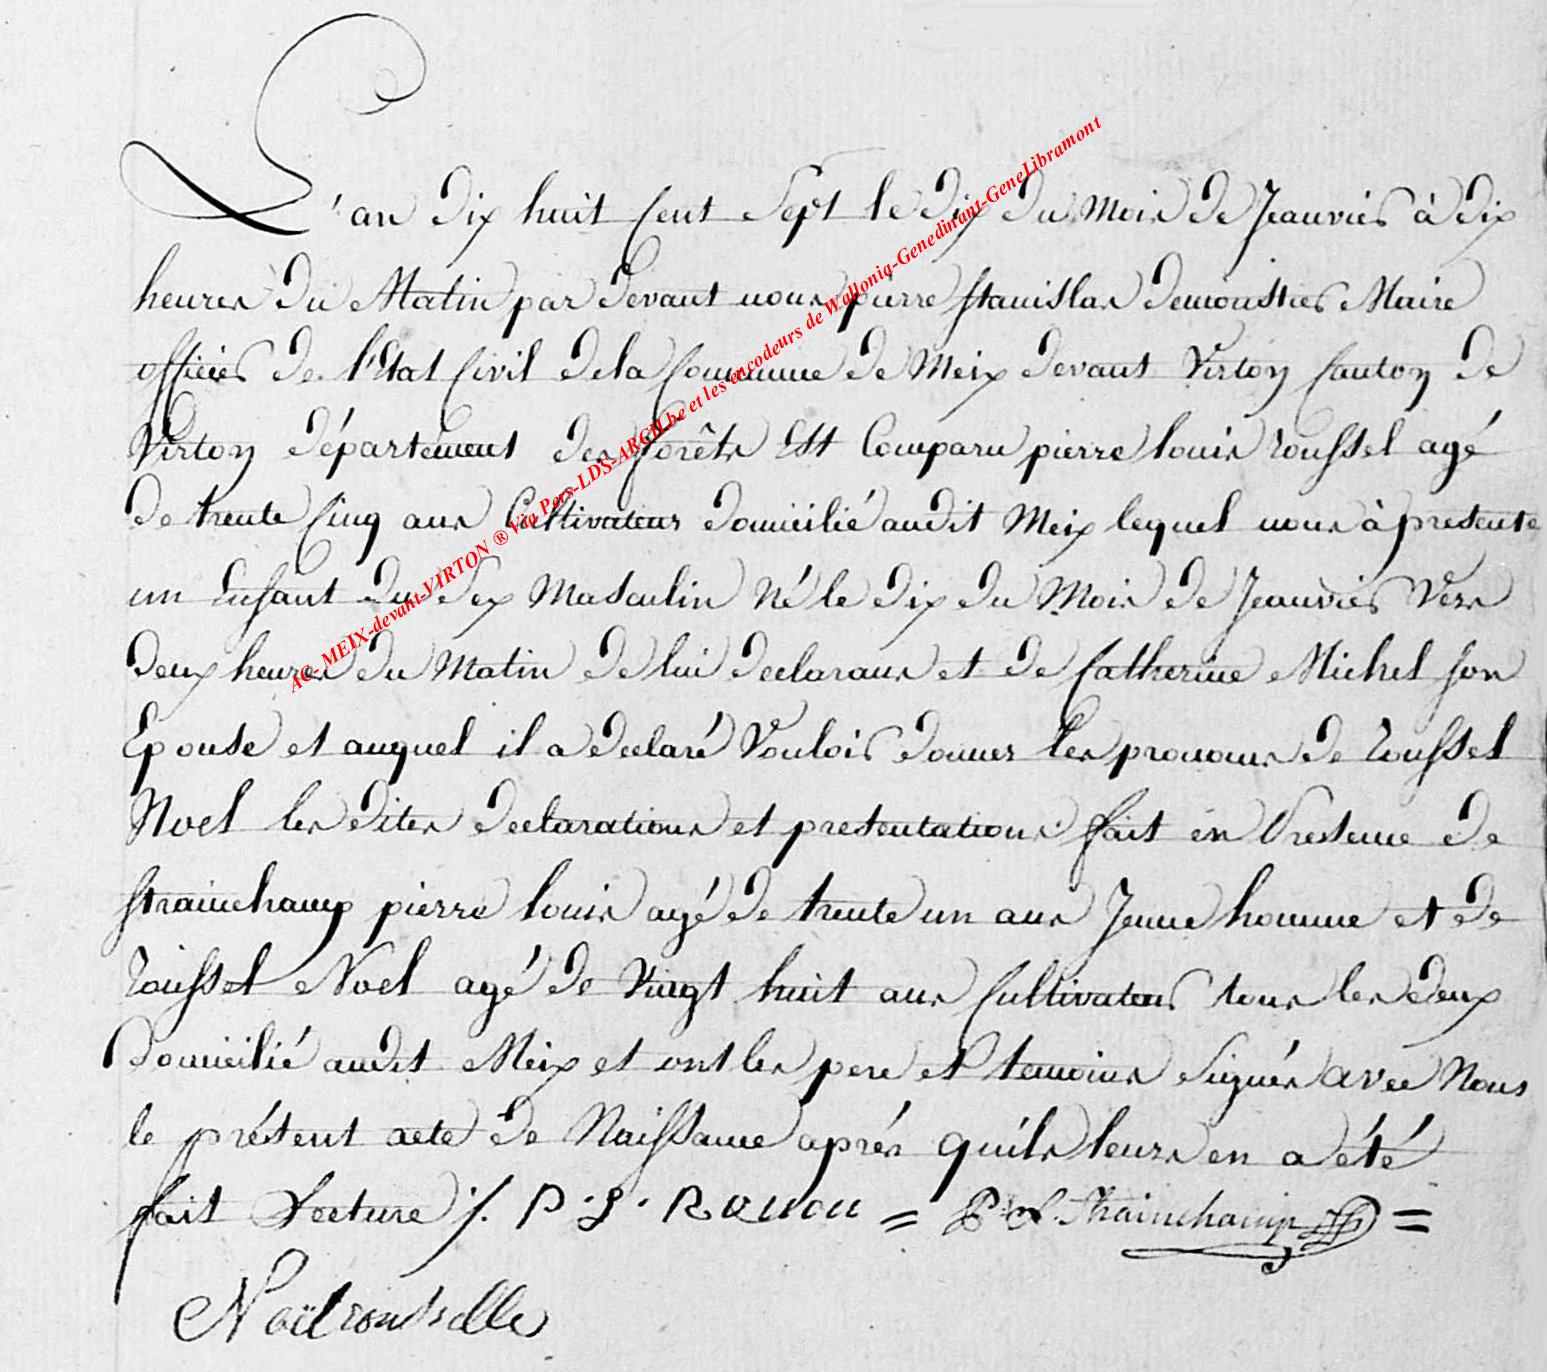 L'an dix huit Cent Sept le dix du Mois de Jeanvier à dix
heures du Matin par devant nous pierre stanislas demoustier Maire
officier de l'Etat Civil dela Commune de Meix devant Virton Canton de
Virton département des forêts Est Comparu pierre louis roussel agé
de trente Cinq ans Cultivateur domicilié audit Meix lequel nous à presenté
un Enfant du Sex Masculin Né le dix du Mois de Jeanvier Vers
deux heures du Matin de lui declarans et de Catherine Michel son
Epouse et auquel il a declaré Vouloir donner les pronoms de roussel
Noel les dites declarations et presentations fait en Presence de
strainchamp pierre louis agé de trente un ans Jeune homme et de
roussel Noel agé de Vingt huit ans Cultivateur tous les deux
Domicilié audit Meix et ont les pere et temoins Signés avec Nous
le présent acte de Naissance aprés quils leurs en a été
fait Lecture /. P. L. = P L. Strainchamp =
Noël rousselle
AC- MEIX-devant-VIRTON ® Via Pers-LDS-ARCH.be et les encodeurs de Wallonia-Genedinant-GeneLibramont